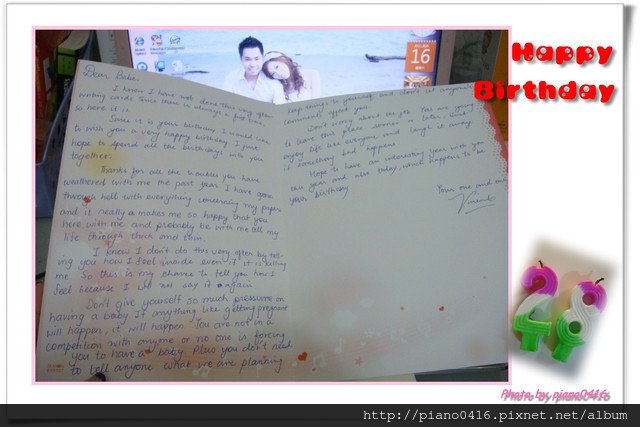 Happy
Birthday
16
Dear Babe,
I know I have not done this very often
writing cards since there is always a first time,
so here it is.
Since it is your birthday I would like
to wish you a very happy birthday. I just
hope to spend all the birthdays with you
together.
Thanks for all the troubles you have
weathered with me the past year. I have gone
through hell with everything concerning my papers
and it really makes me so happy that you
here with me and probably be with me all my
life through thick and thin.
I know I don't do this very often by tell-
ing you how I feel inside even if it is killing
me. So this is my chance to tell you how I
feel because I will not say it again
Don't give yourself so much pressure on
having a baby. If anything like getting pregnant
will happen, it will happen. You are not in a
competition with anyone or no one is forcing
you to have a baby. Plus you don't need
to tell anyone what we are planning
keep things to yourself and don't let anyone
comments affect you.
Don't worry about the job. You are going
to leave this place sooner or later. Just
enjoy life like everyone and laugh it away
if something bad happens
Hope to have an interesting year with you
this year and also today, which happens to be
your birthday
Your one and only
Photo by piano0416
http://piano0416.pixnet.net/album